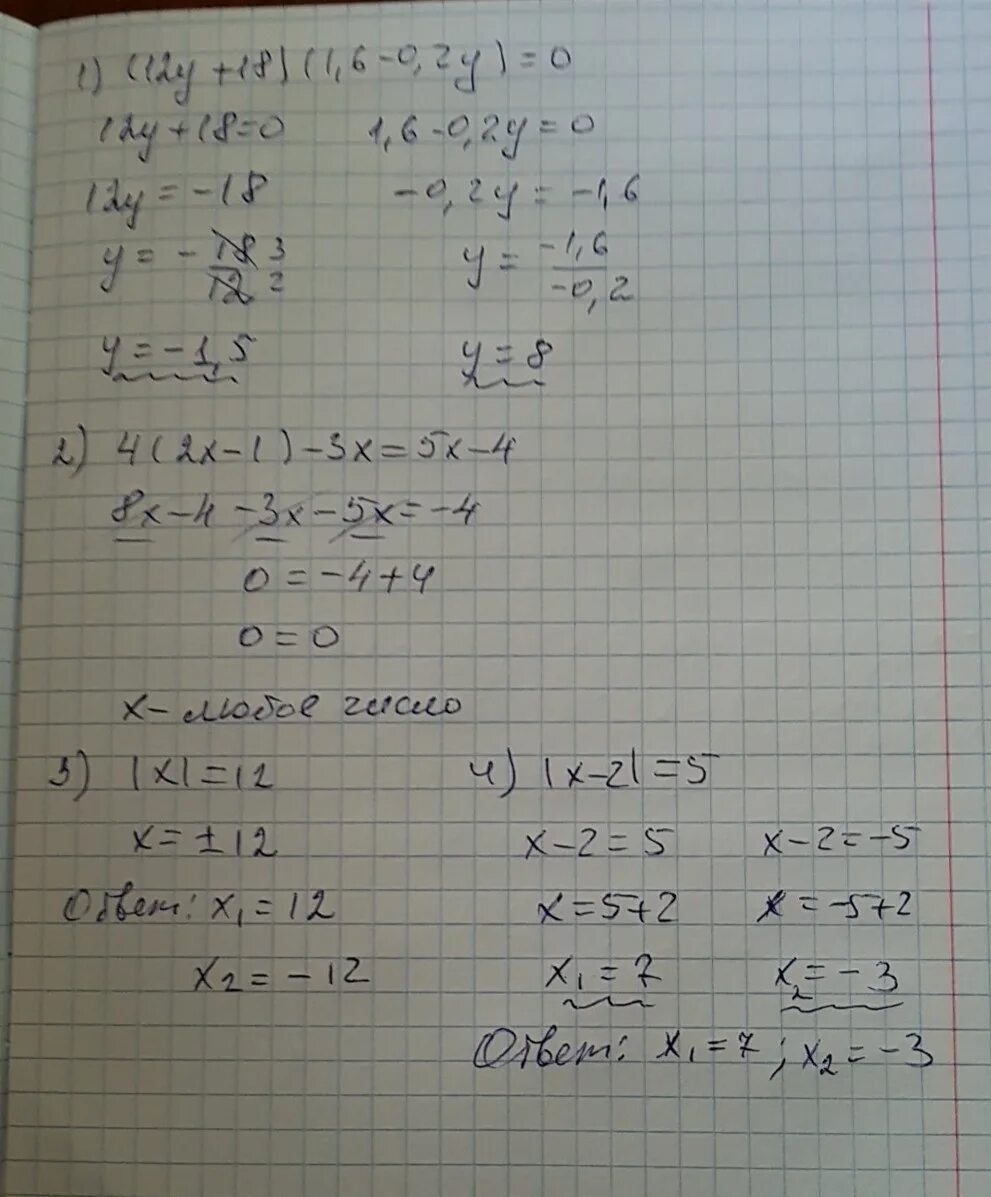 1) (12y+18)(1,6-0,2y)=0
12y+18=0 1,6-0,2y=0
12y=-18 -0,2y=-1,6
y = - 18 3 / 12 2 y = -1,6 / -0,2
y=-1,5 y=8
2) 4(2x-1)-3x=5x-4
8x-4-3x-5x=-4
0=-4+4
0=0
x-любое число
3) |x|=12 4) |x-2|=5
x=±12 x-2=5 x-2=-5
Ответ: x₁=12 x=5+2 x=-5+2
x₂=-12 x₁=7 x₂=-3
Ответ: x₁=7; x₂=-3